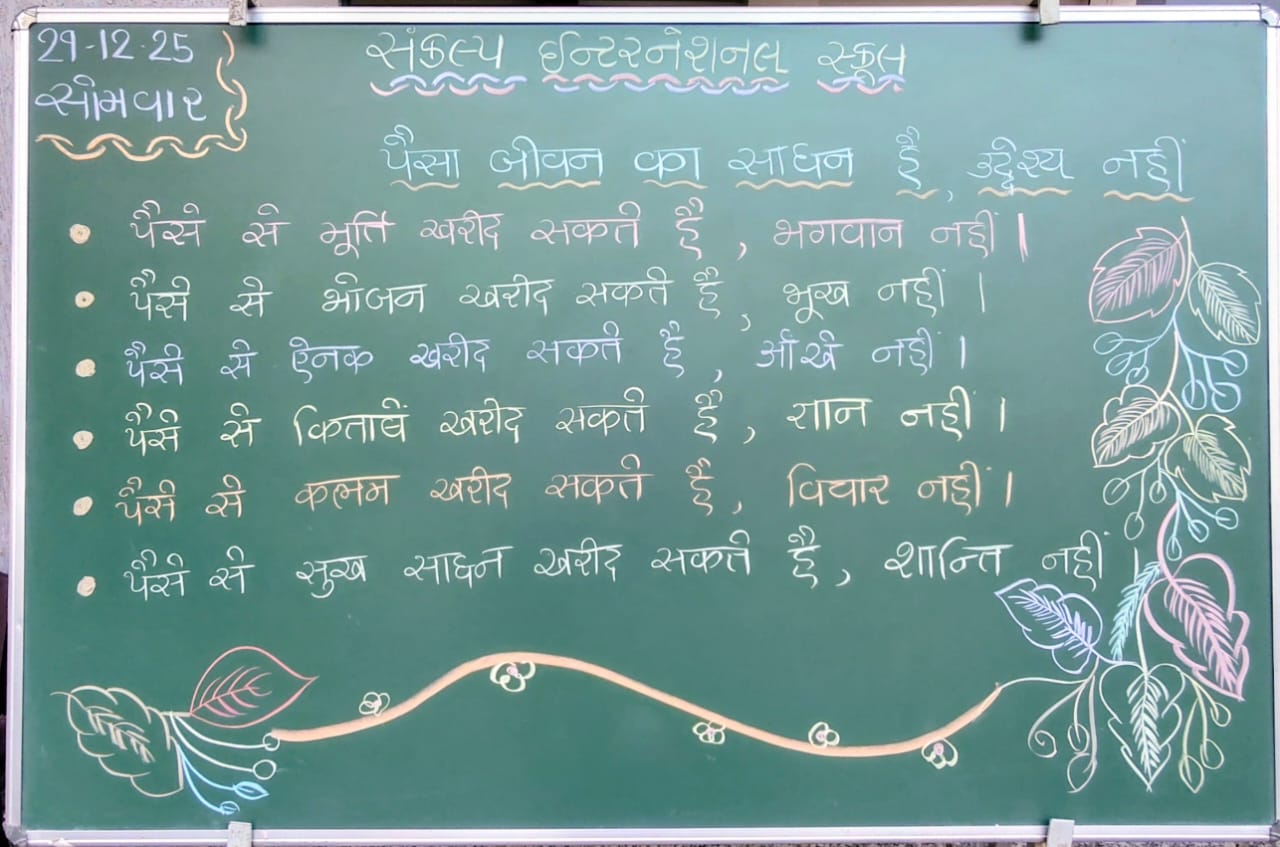 29-12-25
सोमवार
संकल्प ईन्टरनेशनल स्कूल
पैसा जीवन का साधन है, उद्देश्य नहीं
• पैसे से मूर्ति खरीद सकते हैं, भगवान नहीं।
• पैसे से भोजन खरीद सकते है, भूख नहीं।
• पैसे से ऐनक खरीद सकते है, आँखे नहीं।
• पैसे से किताबें खरीद सकते हैं, ज्ञान नहीं।
• पैसे से कलम खरीद सकते हैं, विचार नहीं।
• पैसे से सुख साधन खरीद सकते है, शान्ति नहीं।